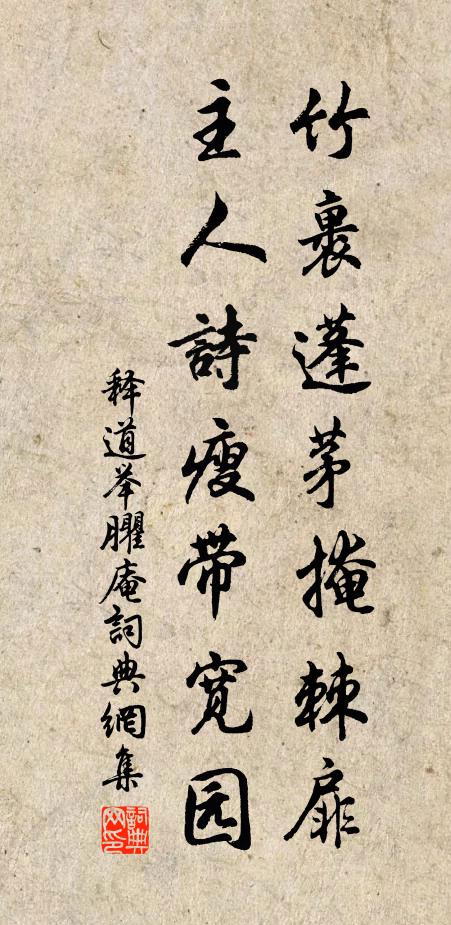 竹裹蓬茅掩棘扉
主人詩瘦带宽园
释道举臞庵詞典網集
詞典
网印